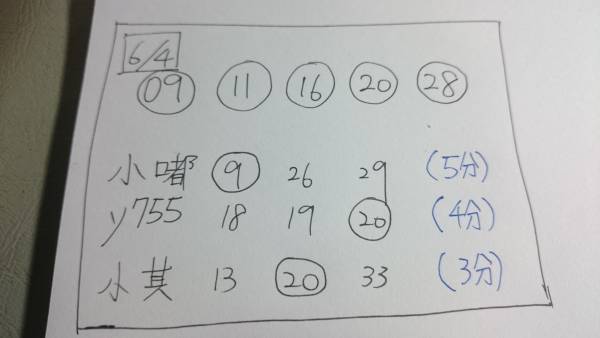 6/4
09 11 16 20 28
小嘟 9 26 29 (5分)
y755 18 19 20 (4分)
小其 13 20 33 (3分)